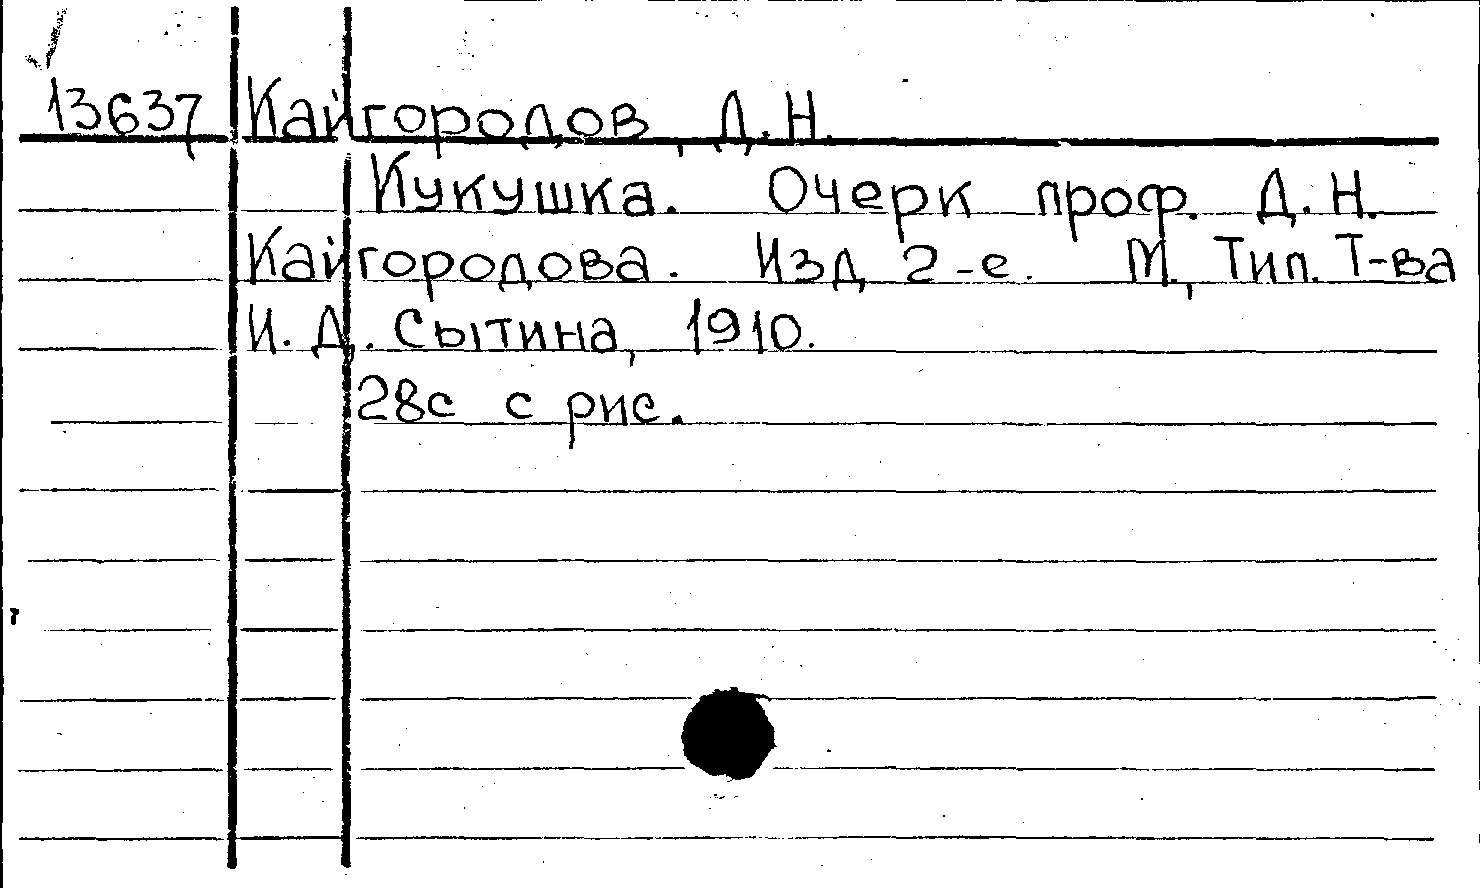 13637 Кайгородов, Д.Н.
Кукушка. Очерк проф. Д.Н.
Кайгородова. Изд 2-е. М., Тип. Т-ва
И. Д. Сытина, 1910.
28с с рис.